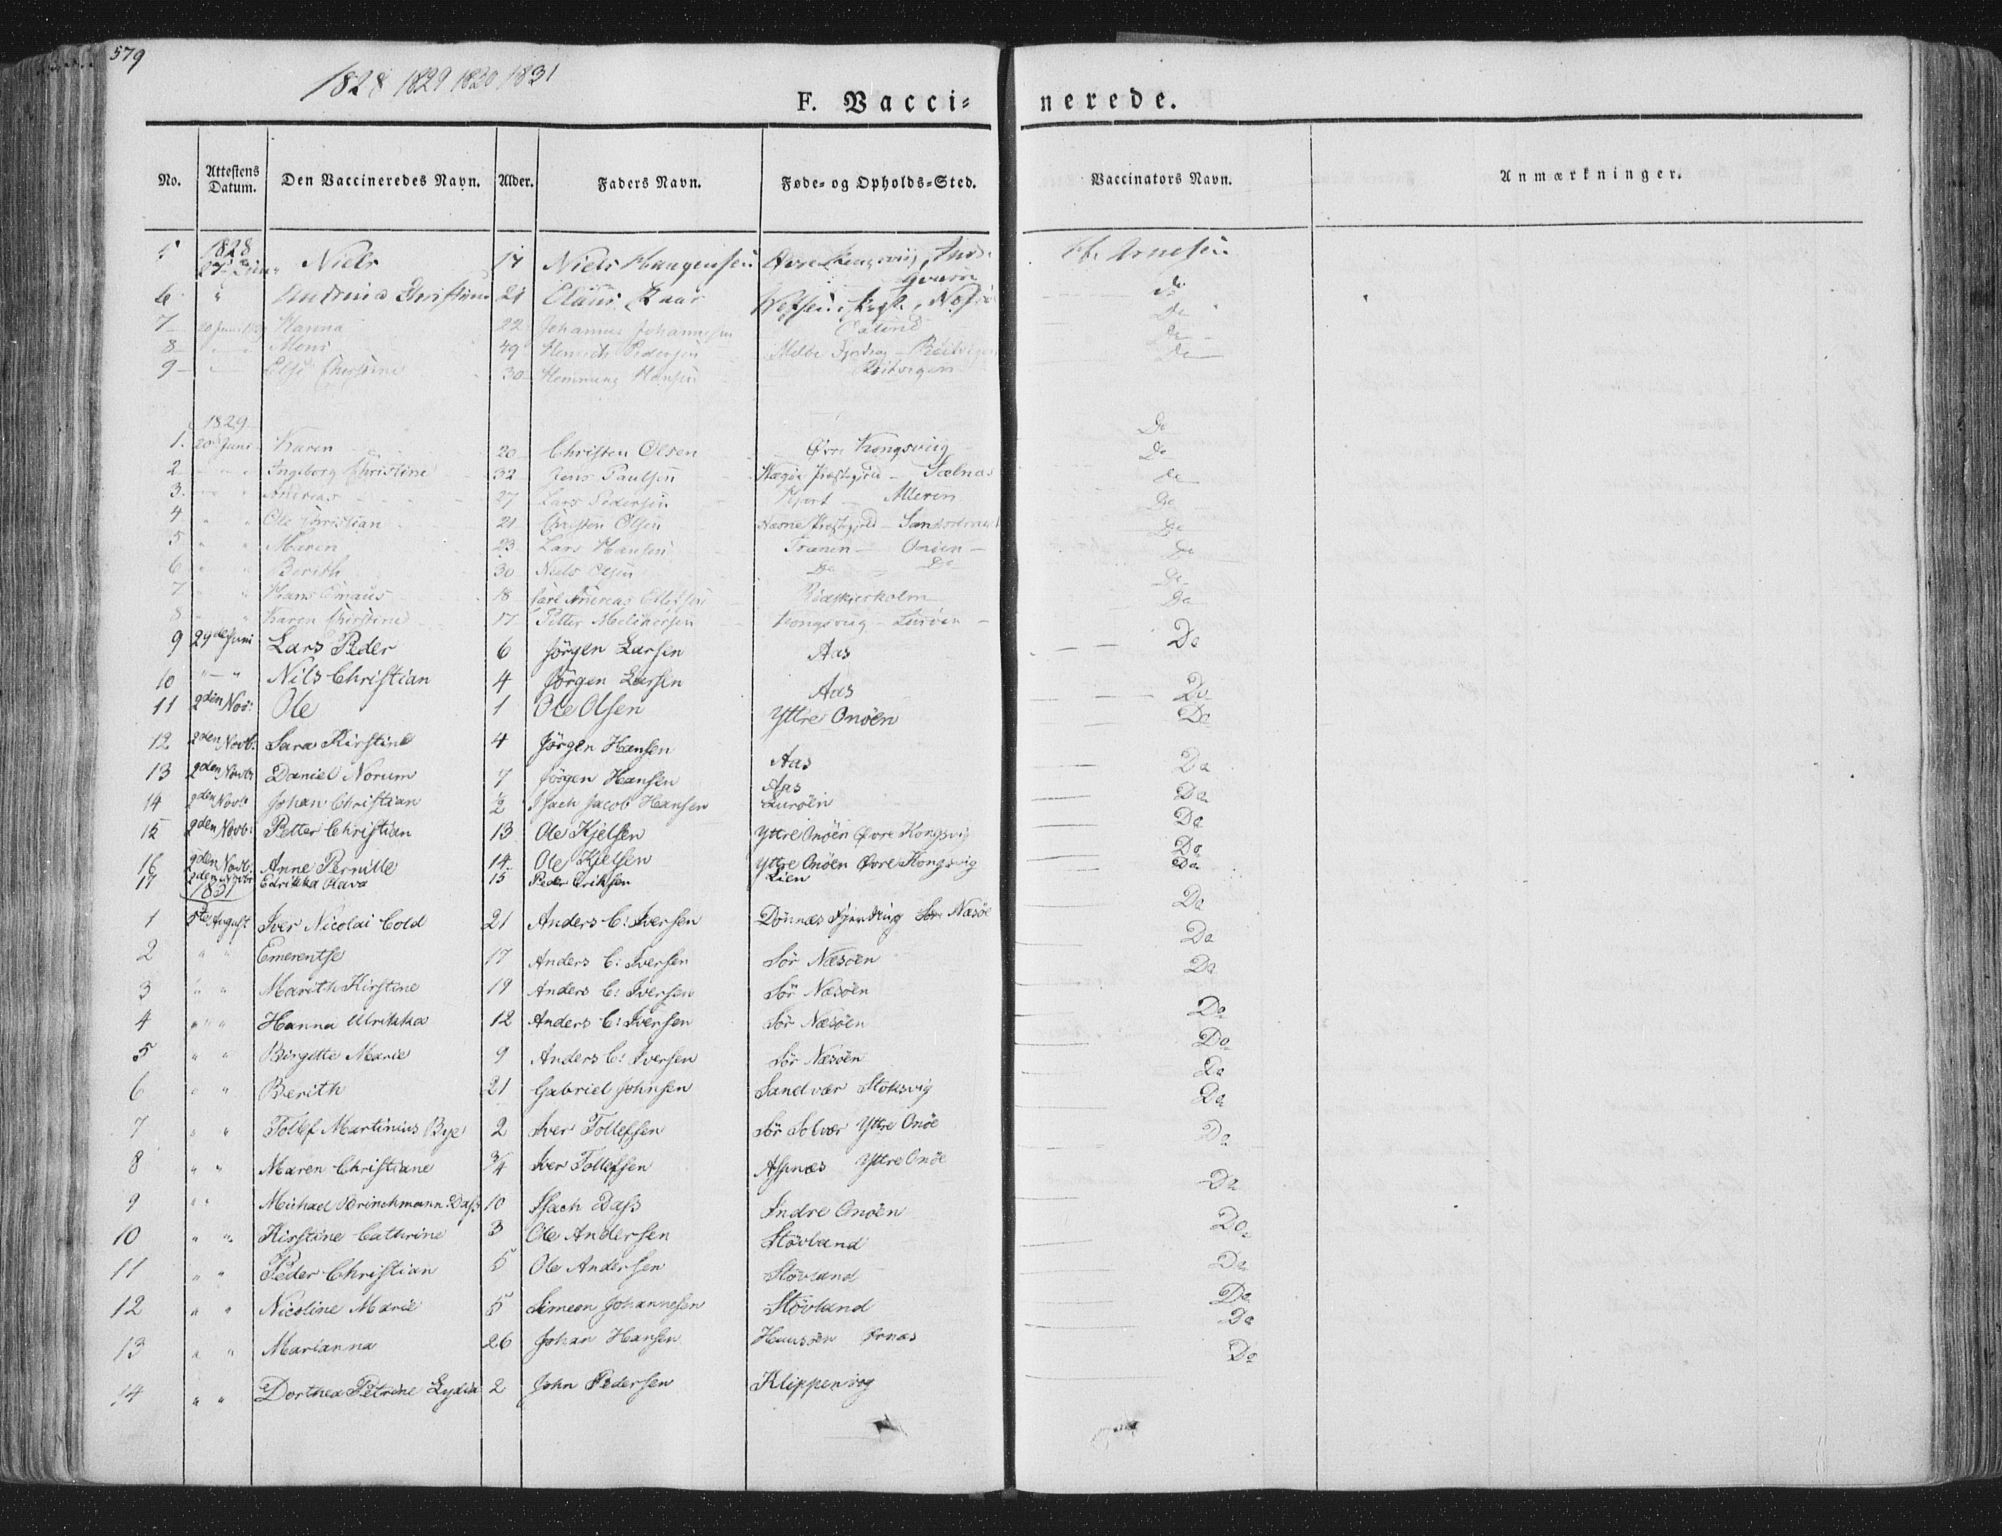 579
1828 1829 1830 1831
F. Vacci- nerede.
No. Attestens Datum. Den Vaccineredes Navn. Alder. Faders Navn. Føde- og Opholds-Sted. Vaccinators Navn. Anmærkninger.
1828
5 Niels 17 Niels Haagensen Arnesen
6 " 21 Claus Do
7 Hanna 22 Johannes Johannesen Do
8 Mons 49 Henrich Pedersen Do
9 Else 30 Hemming Hansen Reitvigen Do
1829
1. 20 Juni Karen 20 Christen Olsen Øvre Kongsvig Do
2 " " Ingeborg Christine 32 Jens Paulsen Præstegjeld Do
3. " " Andreas 27 Lars Pedersen Alleren Do
4 " " Ole Christian 21 Christen Olsen Næsne Præstegjeld Do
5 " " Maren 23 Lars Hansen Trænen Onöen Do
6 " " Berith 30 Niels Olsen Do Do Do
7 " " Hans 18 Carl Andreas Rödskierholm Do
8 " " Karen Christine 17 Petter Melchersen Kongsvig Luröen Do
9 29de Juni Lars Peder 6 Jörgen Larsen Aas Do
10 " " Nils Christian 4 Jörgen Larsen Aas Do
11 2den Nov: Ole 1 Ole Olsen Yttre Onöen Do
12 2den Novb: Sara Kirstine 4 Jörgen Hansen Aas Do
13 2den Novb: Daniel Norum 7 Jörgen Hansen Aas Do
14 2den Novb: Johan Christian 1/2 Isach Jacob Hansen Luröen Do
15 2den Novb: Petter Christian 13 Ole Kjelsen Yttre Onöen Øvre Kongsvig Do
16 2den Novb: Anne Pernille 14 Ole Kjelsen Yttre Onöen Øvre Kongsvig Do
17 2den Novbr Edrikka Olava 15 Peder Eriksen Lien Do
1831
1 5te August Iver Nicolai Cold 21 Anders C: Iversen Dönnæs Fjerding Sör Næsöe Do
2 " " Emerentse 17 Anders C: Iversen Sör Næsöen Do
3 " " Marith Kirstine 19 Anders C: Iversen Sör Næsöen Do
4 " " Hanna Ulrikka 12 Anders C: Iversen Sör Næsöen Do
5 " " Birgitte Marie 9 Anders C: Iversen Sör Næsöen Do
6 " " Berith 21 Gabriel Johnsen Sandvær Stoksvig Do
7 " " Tollef Martinius Bye 2 Iver Tollefsen Sör Solvær Yttre Onöe Do
8 " " Maren Christiane 3/4 Iver Tollefsen Aspnæs Yttre Onöe Do
9 " " Michael Brinchmann Dass 10 Isach Dass Indre Onöen Do
10 " " Kirstine Cathrine 3 Ole Andersen Stövland Do
11 " " Peder Christian 5 Ole Andersen Stövland Do
12 " " Nicoline Marie 5 Simeon Johannesen Stövland Do
13 " " Marianna 26 Johan Hansen Do
14 " " Dorthea Petrine Lydia 2 John Pedersen Klippenvog Do